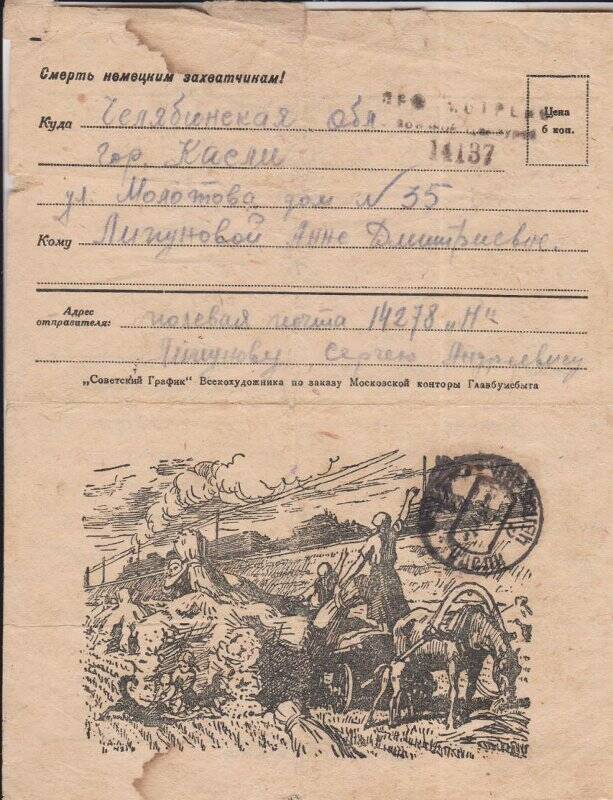 Смерть немецким захватчикам!
Куда Челябинская обл
гор. Касли
ул. Молотова дом № 35
Кому Липуновой Анне Дмитриевне.
Цена
6 коп.
14137
Адрес
отправителя: полевая почта 14278 „Н“
Липунову Сергею
„Советский График“ Всекохудожника по заказу Московской конторы Главбумсбыта